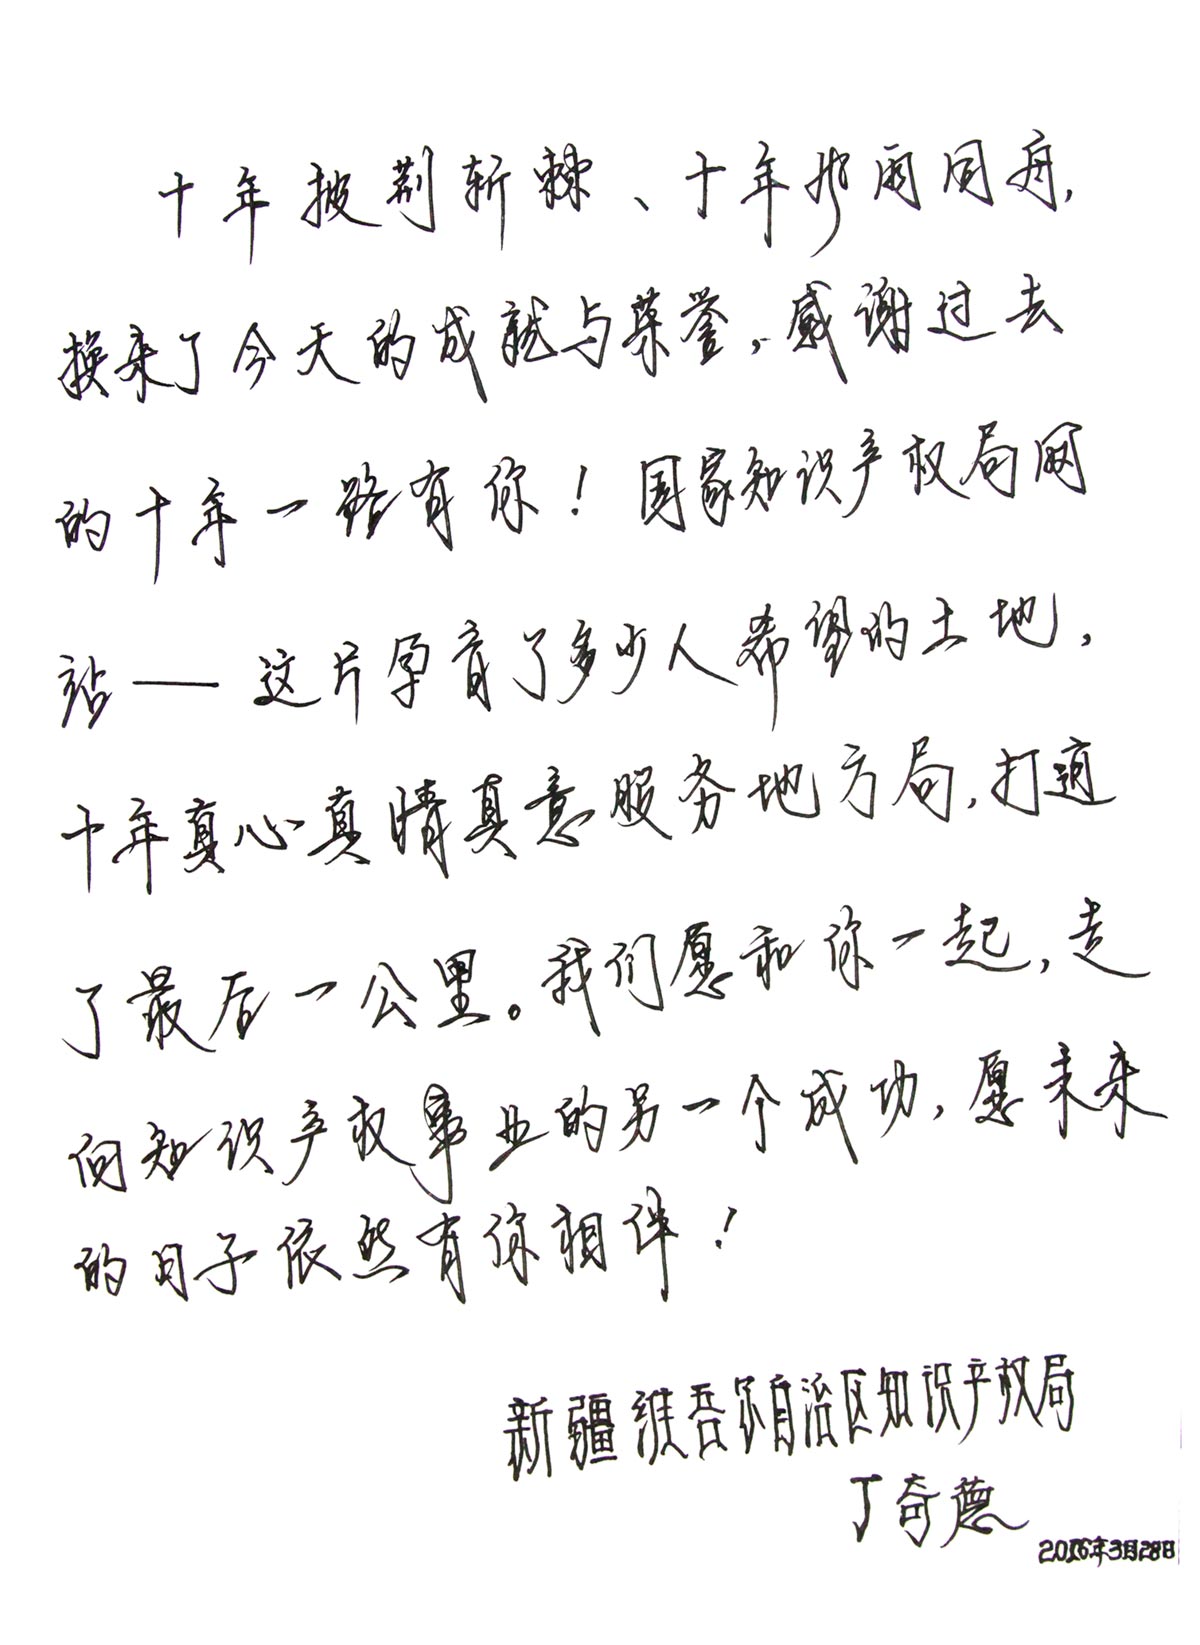 十年披荆斩棘、十年风雨同舟,
换来了今天的成就与荣誉,感谢过去
的十年一路有你!国家知识产权局网
站——这片孕育了多少人希望的土地,
十年真心真情真意服务地方局,打通
了最后一公里。我们愿和你一起,走
向知识产权事业的另一个成功,愿未来
的日子依然有你相伴!
新疆维吾尔自治区知识产权局
丁奇德
2016年3月28日